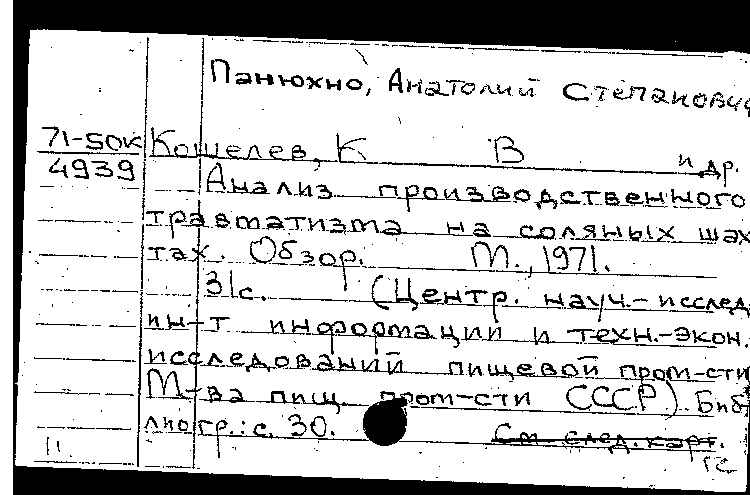 Панюхно, Анатолий Степанович
71-50К Кошелев, К В и др.
4939 Анализ производственного
травматизма на соляных шах
тах. Обзор. М., 1971.
31с. (Центр. науч.-исслед
ин-т информации и техн.-экон.
исследований пищевой пром-сти
М-ва пищ. пром-сти СССР). Биб
лиогр.: с. 30. См. след. карт.
11